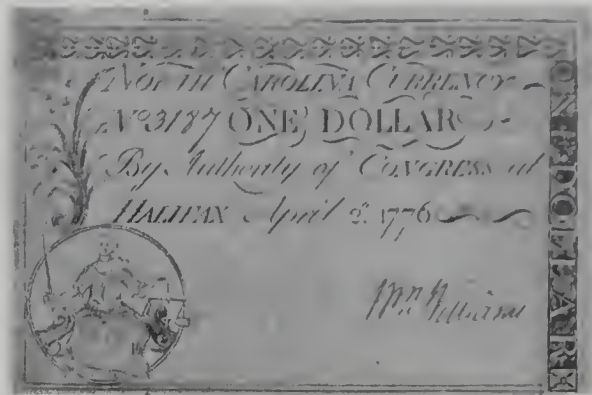 NORTH CAROLINA CURRENCY
No 3187 ONE DOLLAR
By Authority of CONGRESS at
HALIFAX April 2, 1776
Wm Williams
ONE DOLLAR